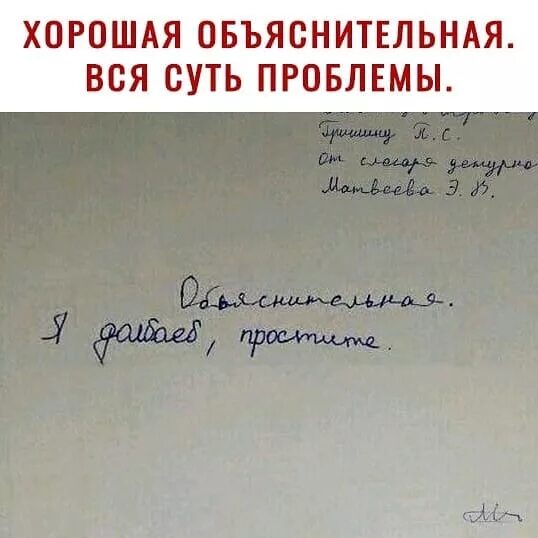 ХОРОШАЯ ОБЪЯСНИТЕЛЬНАЯ.
ВСЯ СУТЬ ПРОБЛЕМЫ.
Гришину П. С.
От слесаря дежурно
Матвеева Э. В.
Объяснительная.
Я долбаеб, простите.